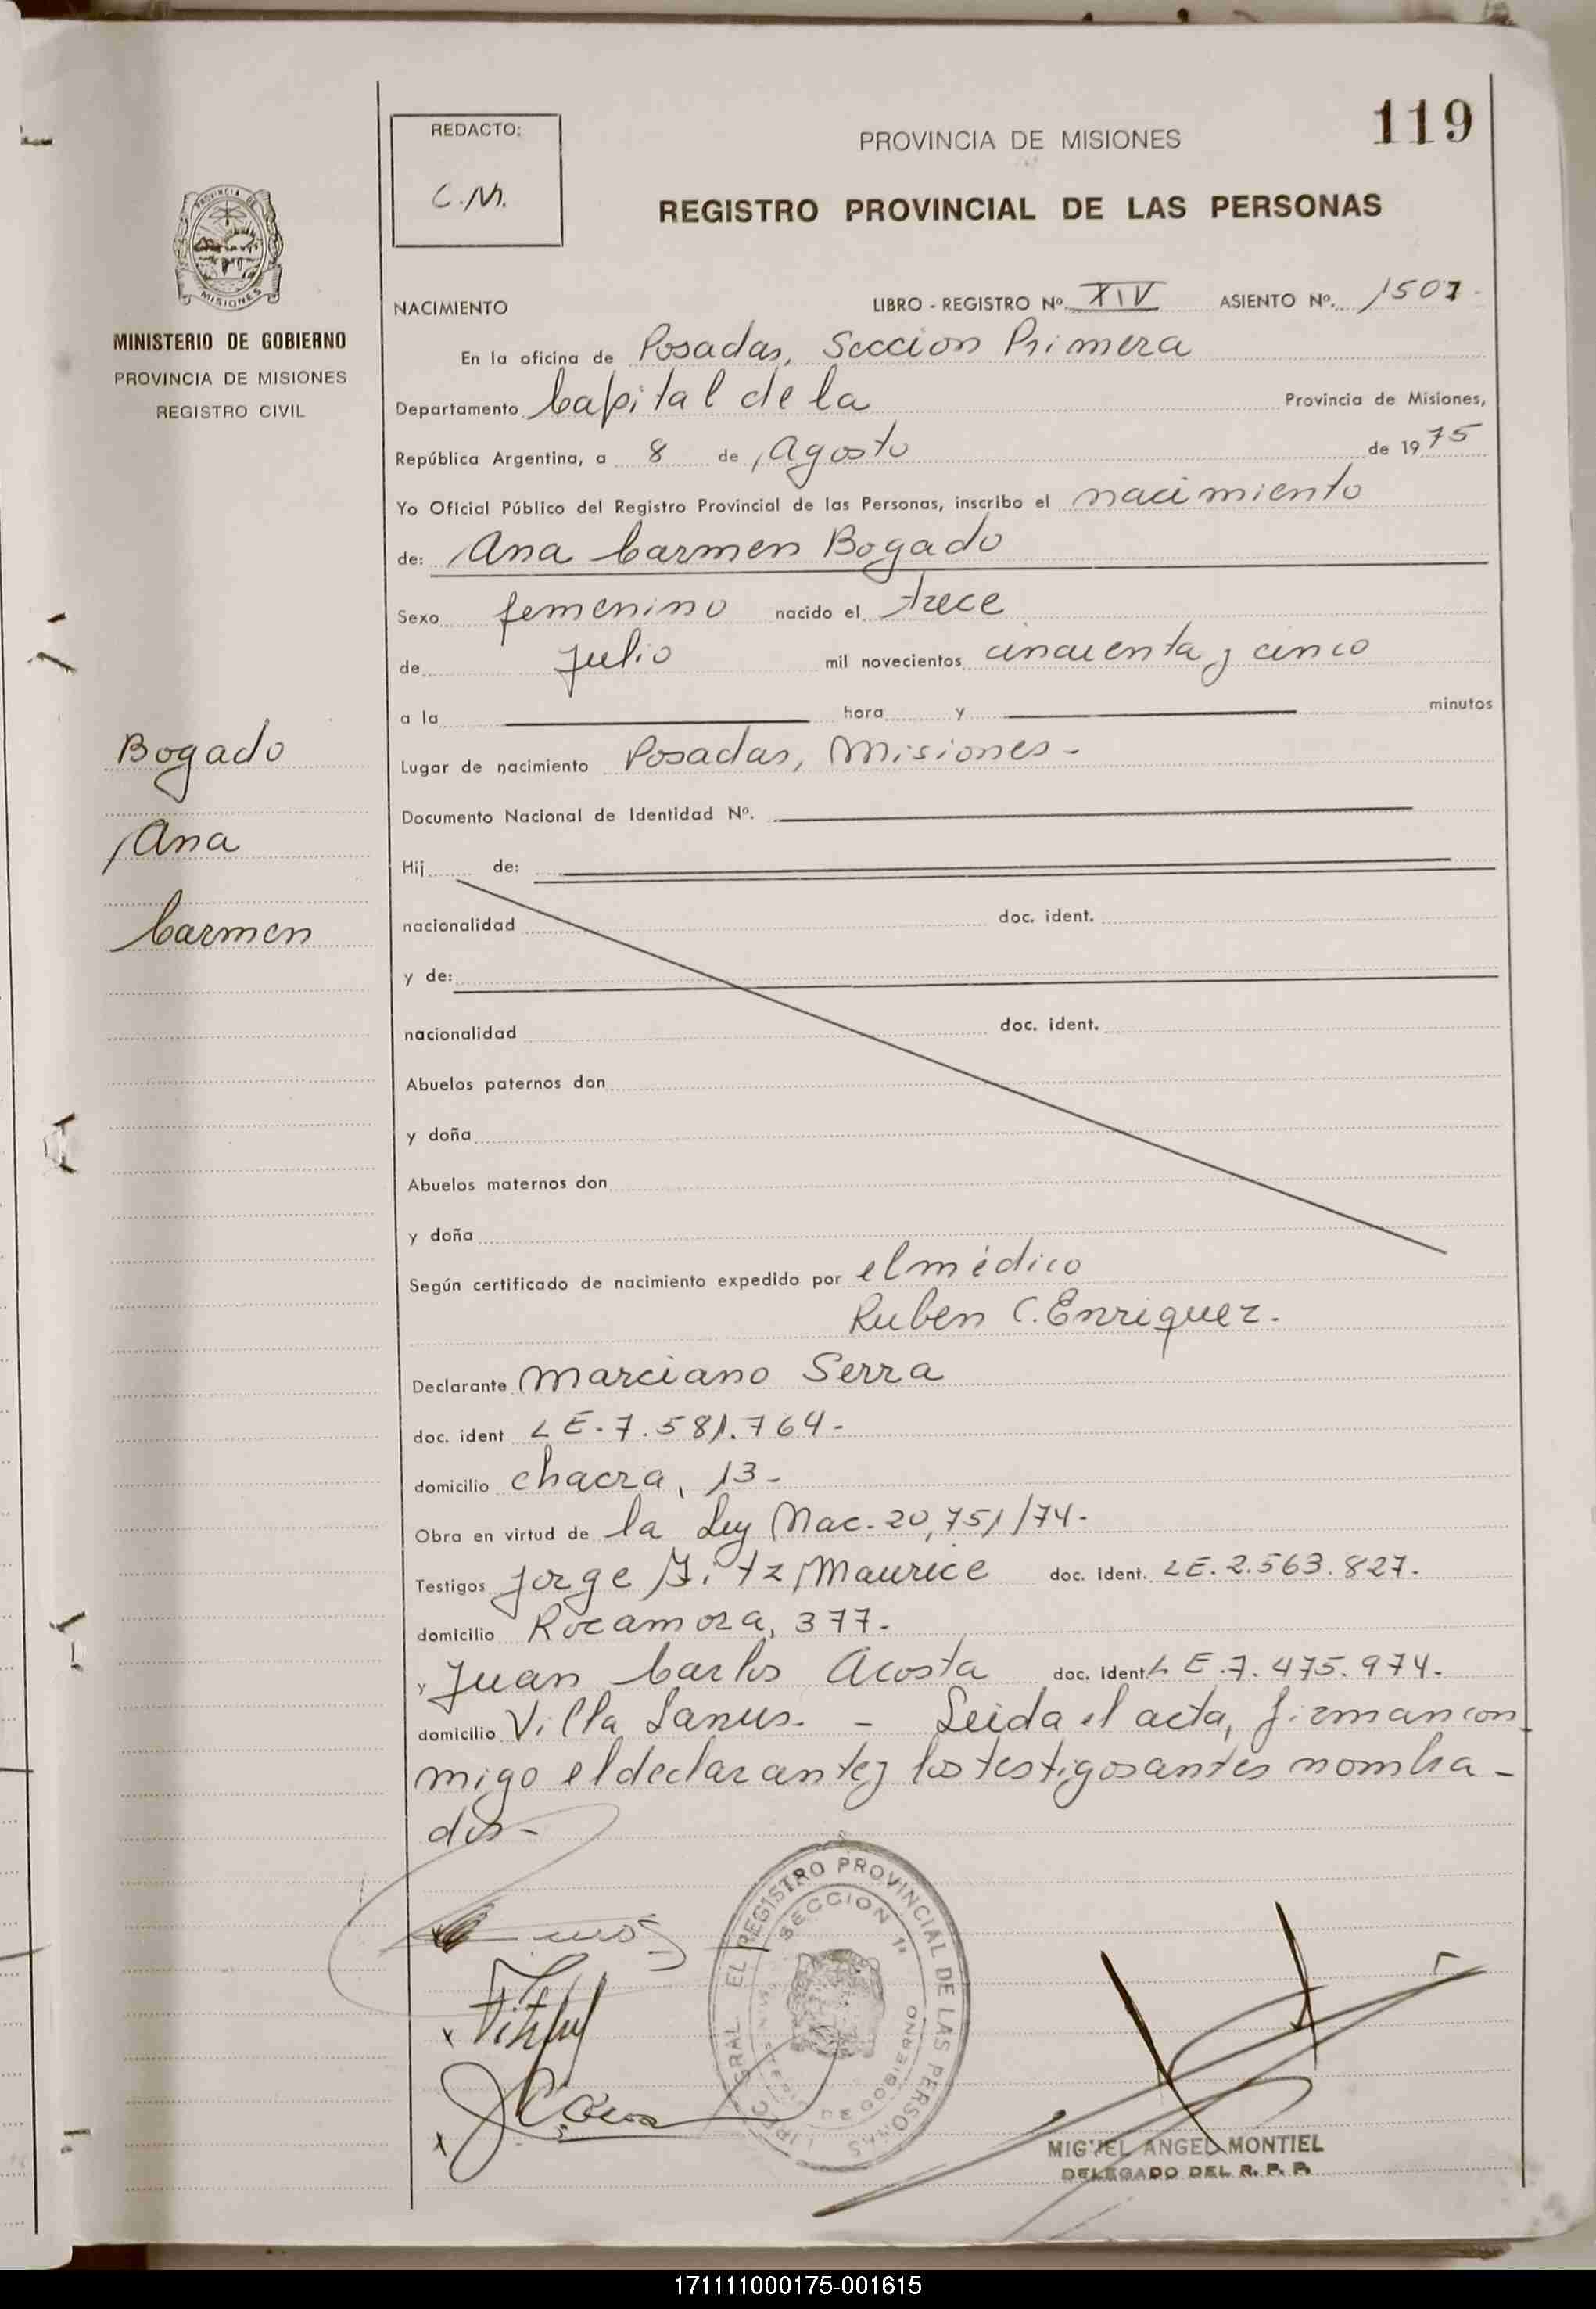 119
REDACTO:
C.M.
PROVINCIA DE MISIONES
REGISTRO PROVINCIAL DE LAS PERSONAS
MINISTERIO DE GOBIERNO
PROVINCIA DE MISIONES
REGISTRO CIVIL
NACIMIENTO LIBRO - REGISTRO Nº. XIV ASIENTO Nº. 1507-
En la oficina de Posadas, Seccion Primera
Departamento Capital de la Provincia de Misiones,
República Argentina, a 8 de Agosto de 1975
Yo Oficial Público del Registro Provincial de las Personas, inscribo el nacimiento
de: Ana Carmen Bogado
Sexo femenino nacido el trece
de Julio mil novecientos cincuenta y cinco
a la hora y minutos
Bogado
Ana
Carmen
Lugar de nacimiento Posadas, Misiones-
Documento Nacional de Identidad Nº.
Hij de:
nacionalidad doc. ident.
y de:
nacionalidad doc. ident.
Abuelos paternos don
y doña
Abuelos maternos don
y doña
Según certificado de nacimiento expedido por el médico
Ruben C. Enriquez.
Declarante Marciano Serra
doc. ident LE-7.581.764-
domicilio chacra, 13-
Obra en virtud de la Ley Nac. 20,751/74-
Testigos Jorge Fitz Maurice doc. ident. LE.2.563.827.
domicilio Rocamora, 377-
y Juan Carlos Acosta doc. ident LE.7.475.974-
domicilio Villa Lanus. - Leida el acta, firman con
migo el declarante y los testigos antes nombra-
dos-
GRAL. EL REGISTRO PROVINCIAL DE LAS PERSONAS
SECCION 1ª
DE GOBIERNO
MIGUEL ANGEL MONTIEL
DELEGADO DEL R. P. P.
171111000175-001615